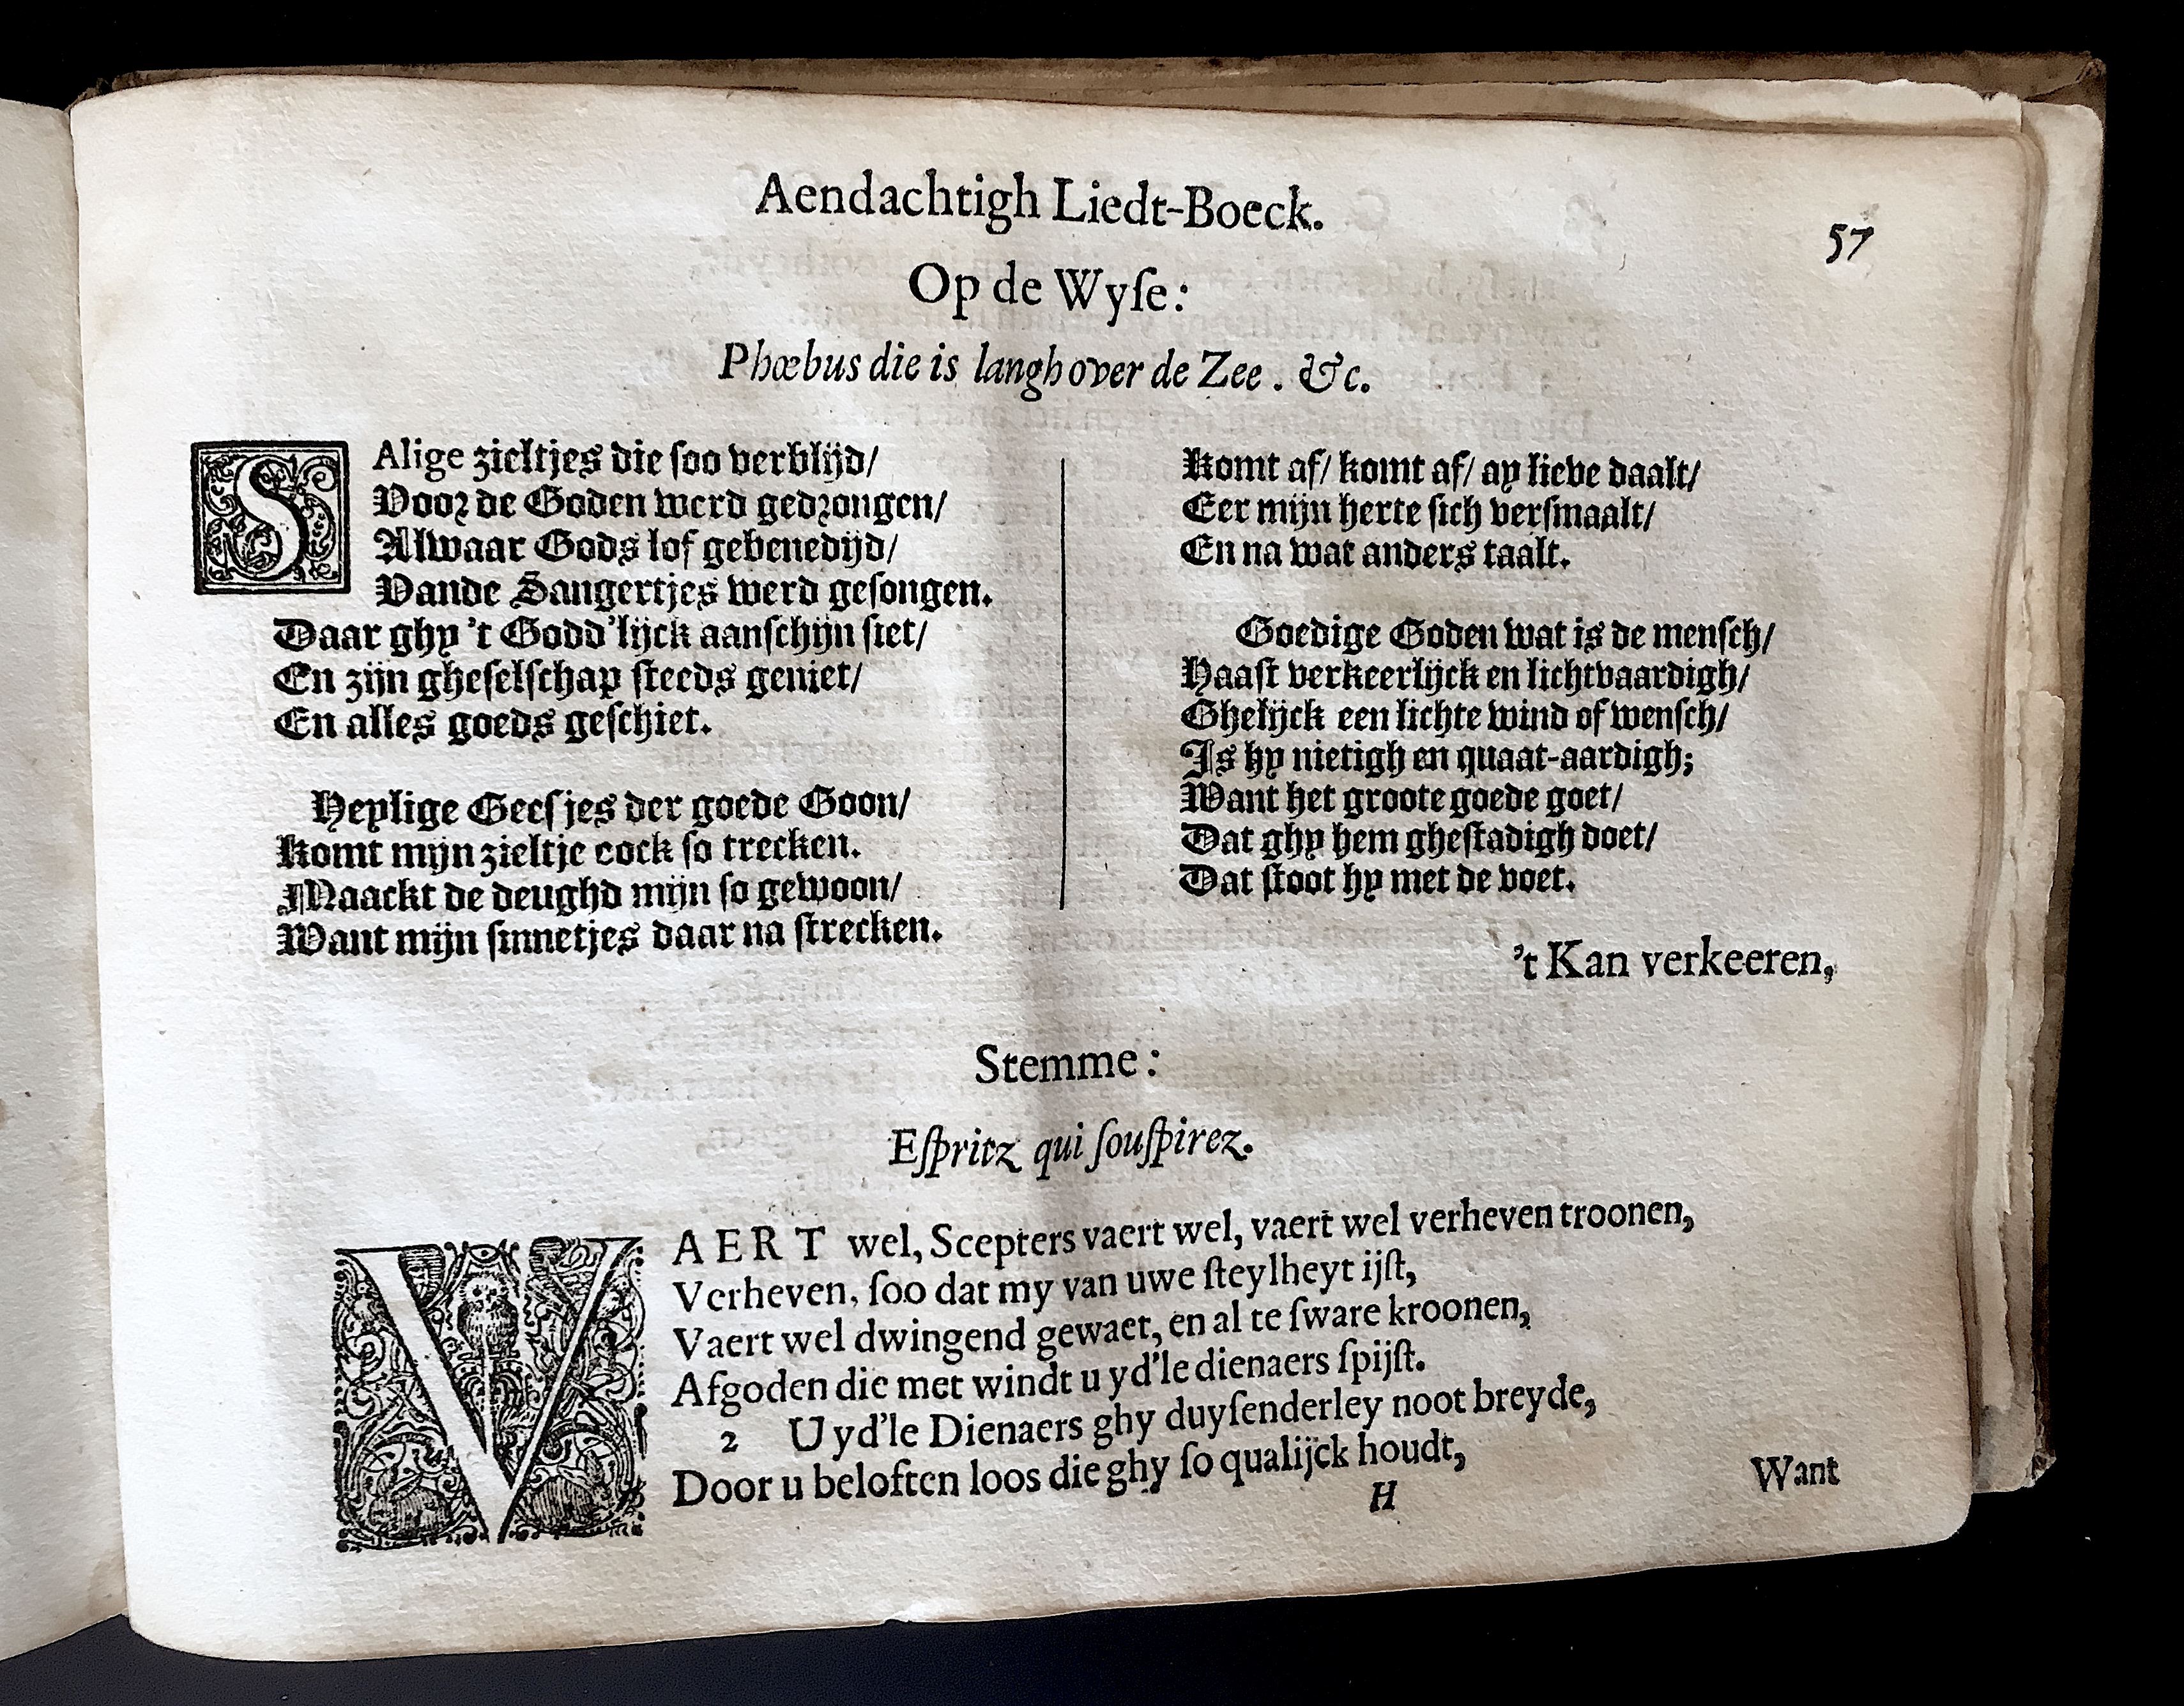 Aendachtigh Liedt-Boeck.
57
Op de Wyſe:
Phœbus die is langh over de Zee . &c.
SAlige zieltjes die ſoo verblijd/
Voor de Goden werd gedrongen/
Alwaar Gods lof gebenedijd/
Vande Sangertjes werd geſongen.
Daar ghy 't Godd'lijck aanſchijn ſiet/
En zijn gheſelſchap ſteeds geniet/
En alles goeds geſchiet.
Heylige Geesjes der goede Goon/
Komt mijn zieltje oock ſo trecken.
Maackt de deughd mijn ſo gewoon/
Want mijn ſinnetjes daar na ſtrecken.
Komt af/ komt af/ ay lieve daalt/
Eer mijn herte ſich verſmaalt/
En na wat anders taalt.
Goedige Goden wat is de menſch/
Haaſt verkeerlijck en lichtvaardigh/
Ghelijck een lichte wind of wenſch/
Is hy nietigh en quaat-aardigh;
Want het groote goede goet/
Dat ghy hem gheſtadigh doet/
Dat ſtoot hy met de voet.
't Kan verkeeren,
Stemme:
Eſpritz qui ſouſpirez.
VAERT wel, Scepters vaert wel, vaert wel verheven troonen,
Verheven, ſoo dat my van uwe ſteylheyt ijſt,
Vaert wel dwingend gewaet, en al te ſware kroonen,
Afgoden die met windt u yd'le dienaers ſpijſt.
2 U yd'le Dienaers ghy duyſenderley noot breyde,
Door u beloften loos die ghy ſo qualijck houdt,
H
Want